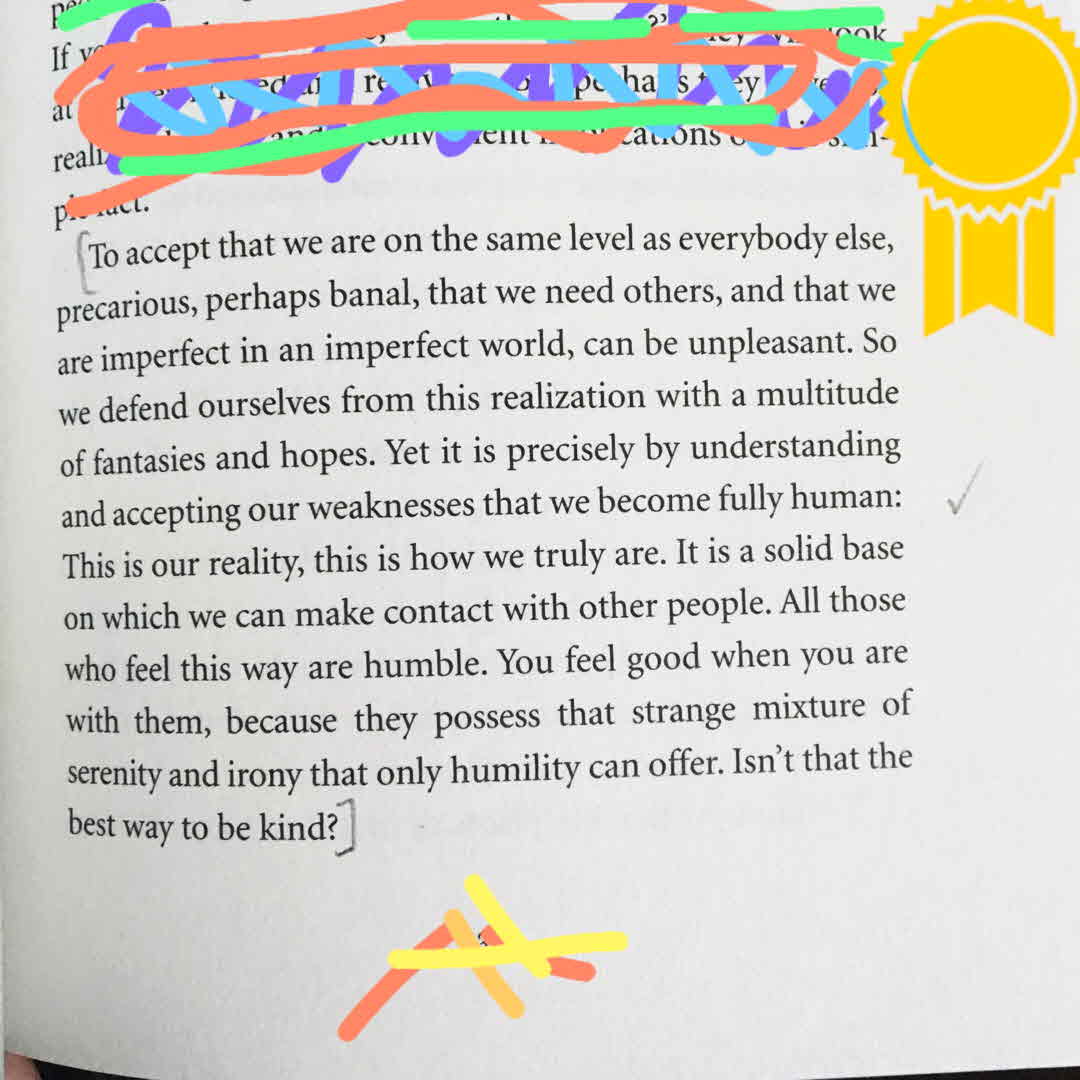 If
at
pe ha s
reali
cations
To accept that we are on the same level as everybody else,
precarious, perhaps banal, that we need others, and that we
are imperfect in an imperfect world, can be unpleasant. So
we defend ourselves from this realization with a multitude
of fantasies and hopes. Yet it is precisely by understanding
and accepting our weaknesses that we become fully human:
This is our reality, this is how we truly are. It is a solid base
on which we can make contact with other people. All those
who feel this way are humble. You feel good when you are
with them, because they possess that strange mixture of
serenity and irony that only humility can offer. Isn't that the
best way to be kind?